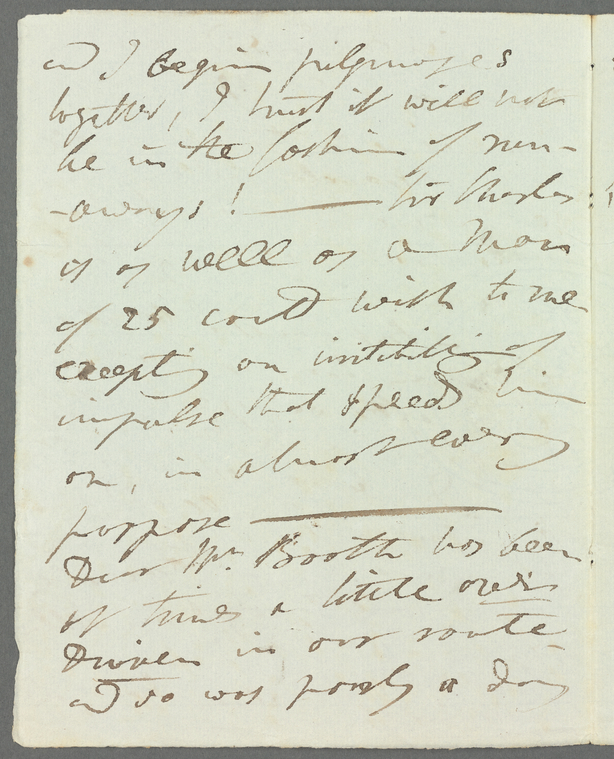 and I begin pilgrimages
together, I trust it will not
be in the fashion of run-
-aways! — Sir Charles
is as well as a Man
of 25 could wish to me
excepting an irritability of
impulse that speeds him
on, in almost every
purpose —
Dear Mr. Booth has been
at times a little over
Driven in our route
and so was poorly a day